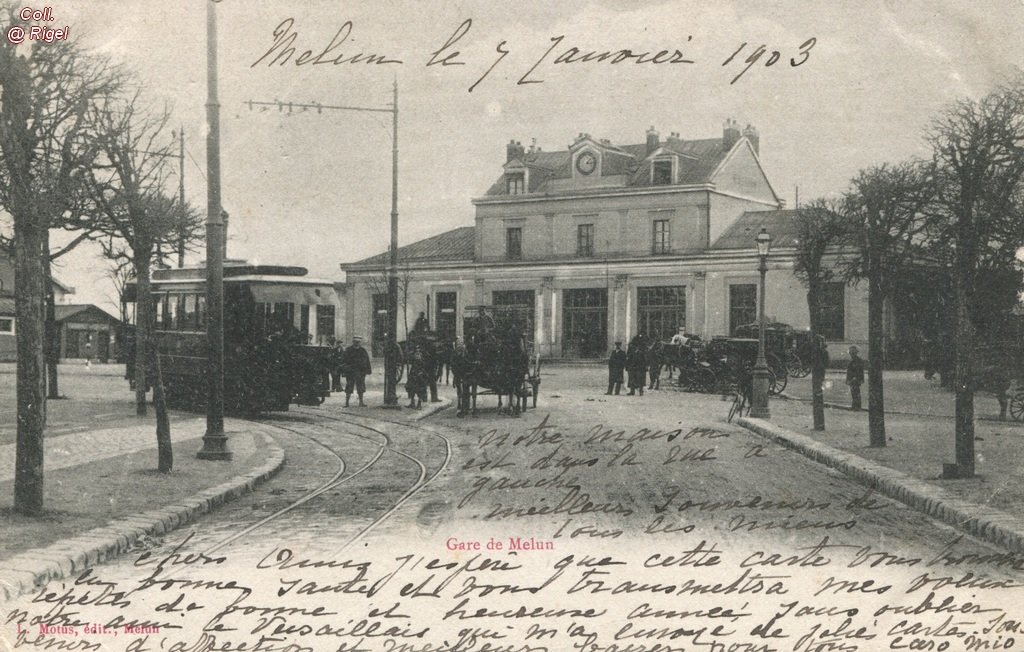 Coll.
@ Rigel
Melun le 7 Janvier 1903
notre maison
est dans la rue a
gauche
meilleurs Souvenirs de
tous les miens
Gare de Melun
chers Amis j'espère que cette carte vous
en bonne Santé et vous transmettra mes voeux
de bonne et heureuse année, Sans oublier
notre ami le Versaillais qui m'a envoyé de jolies cartes. Sou-
L. Motus, édit., Melun
venirs d'affection et meilleurs baisers pour tous caro mio